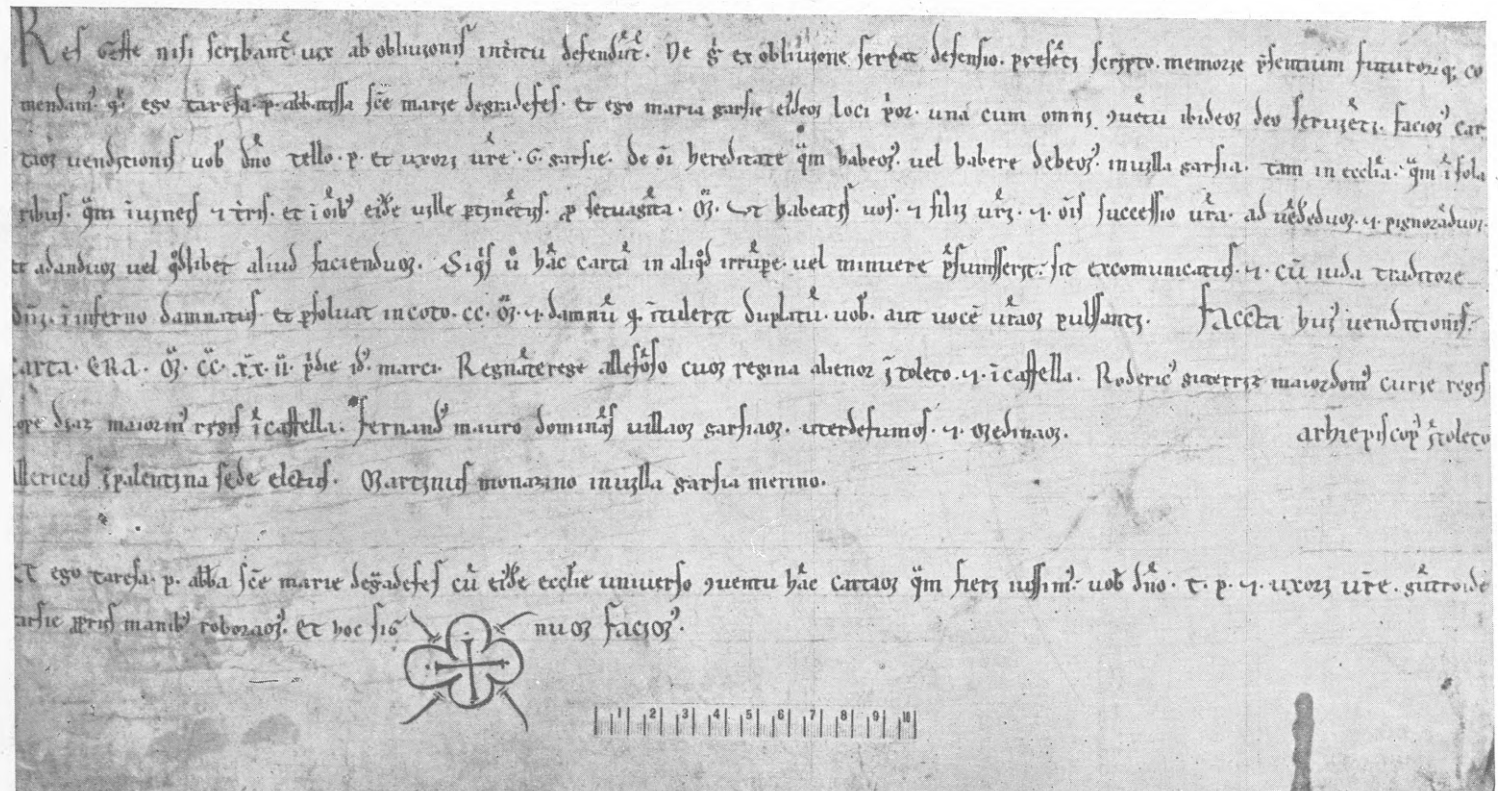 Res geste nisi scribantr̄ uix ab obliuionis int̄itu defendūt. Ne ḡ ex obliuione serpat defensio. presēti scripto. memorie p̄sentium futuroruq; co
mendam᾽ qd̄ ego taresa. p. abbatissa sc̄e marie degradefes. et ego maria garsie eiusdem loci p̄or. una cum omni ꝯuētu ibidem deo seruiēti. facim᾽ car
tam uenditionis uob᾽ dn̄o tello. p. et uxori ur̄e. G. garsie. de ōi hereditate qm̄ habem᾽. uel habere debem᾽. inuilla garsia. tam in ecclīa. qm̄ ī sola
ribus. qm̄ ī uineis ⁊ tr̄is. et ī oīb᾽ eiusdē uille ꝑtinētiis. ꝓ setuagīta. m̄. Vt habeatis uos. ⁊ filii ur̄i. ⁊ ōis successio ur̄a. ad uēdēdum. ⁊ pignorādum.
et adandum uel qd̄libet aliud faciendum. Siqis ū hāc cartā in aliqd̄ irrūpe. uel minuere p̄sumsserit. sit excomunicatus. ⁊ cū iuda traditore
dn̄i. ī inferno damnatus. et ꝑsoluat incoto. cc. m̄. ⁊ damnū q. ītulerit duplatū. uob᾽. aut uocē ur̄am pulsanti. Faccta hui᾽ uenditionis.
carta. ERA. m̄. c̄c. x̄x. īī. p̄die id᾽. marci. Regnāterege allefōso cum regina alienor ī toleto. ⁊. ī castella. Roderic᾽ guterriz maiordom᾽ curie regis
ope diaz maiorin᾽ regis ī castella. Fernand᾽ mauro domināsf uillam garsiam. uterdefumos. ⁊. medinam. arhiepiscop᾽ ī toleto
llericus ī palentina sede electus. Martinus monazino inuilla garsia merino.
Et ego taresa. p. abb̄a sc̄e marie degradefes cū eiusdē ecclīe uniuerso ꝯuentu hāc cartam qm̄ fieri iussim᾽ uob᾽ dn̄o. t. p. ⁊. uxori ur̄e. gūtroide
arsie ꝓpriis manib᾽ roboram᾽. et hoc sig num facim᾽.
1 2 3 4 5 6 7 8 9 10